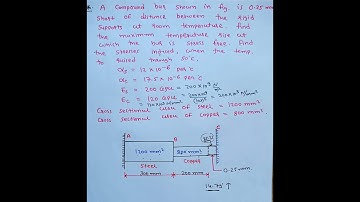 A Compound bar shown in fig. is 0.25 mm
Short of distance between the rigid
Supports at room temperature find
the maximum temperature rise at
which the bar is stress free. Find
the stresses induced, when the temp.
is raised through 50°C.
αs = 12 × 10⁻⁶ per °C
αc = 17.5 × 10⁻⁶ per °C
Es = 200 GPa = 200 × 10³ N/mm²
Ec = 120 GPa
Cross sectional area of steel = 1200 mm²
Cross sectional area of copper = 800 mm²
A
B
1200 mm²
800 mm²
Steel
Copper
300 mm
200 mm
0.25 mm
14.75 ↑